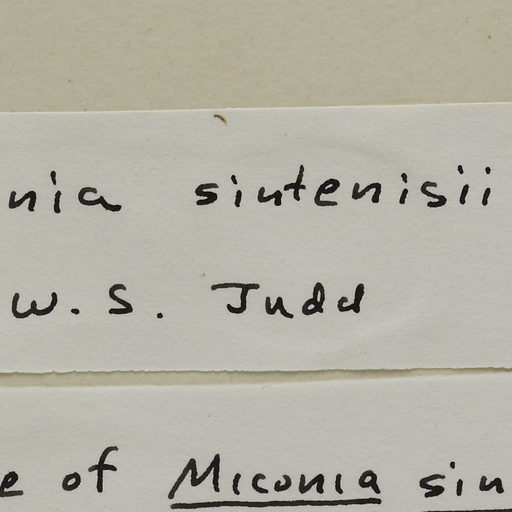 nia sintenisii
W. S. Judd
e of Miconia sin